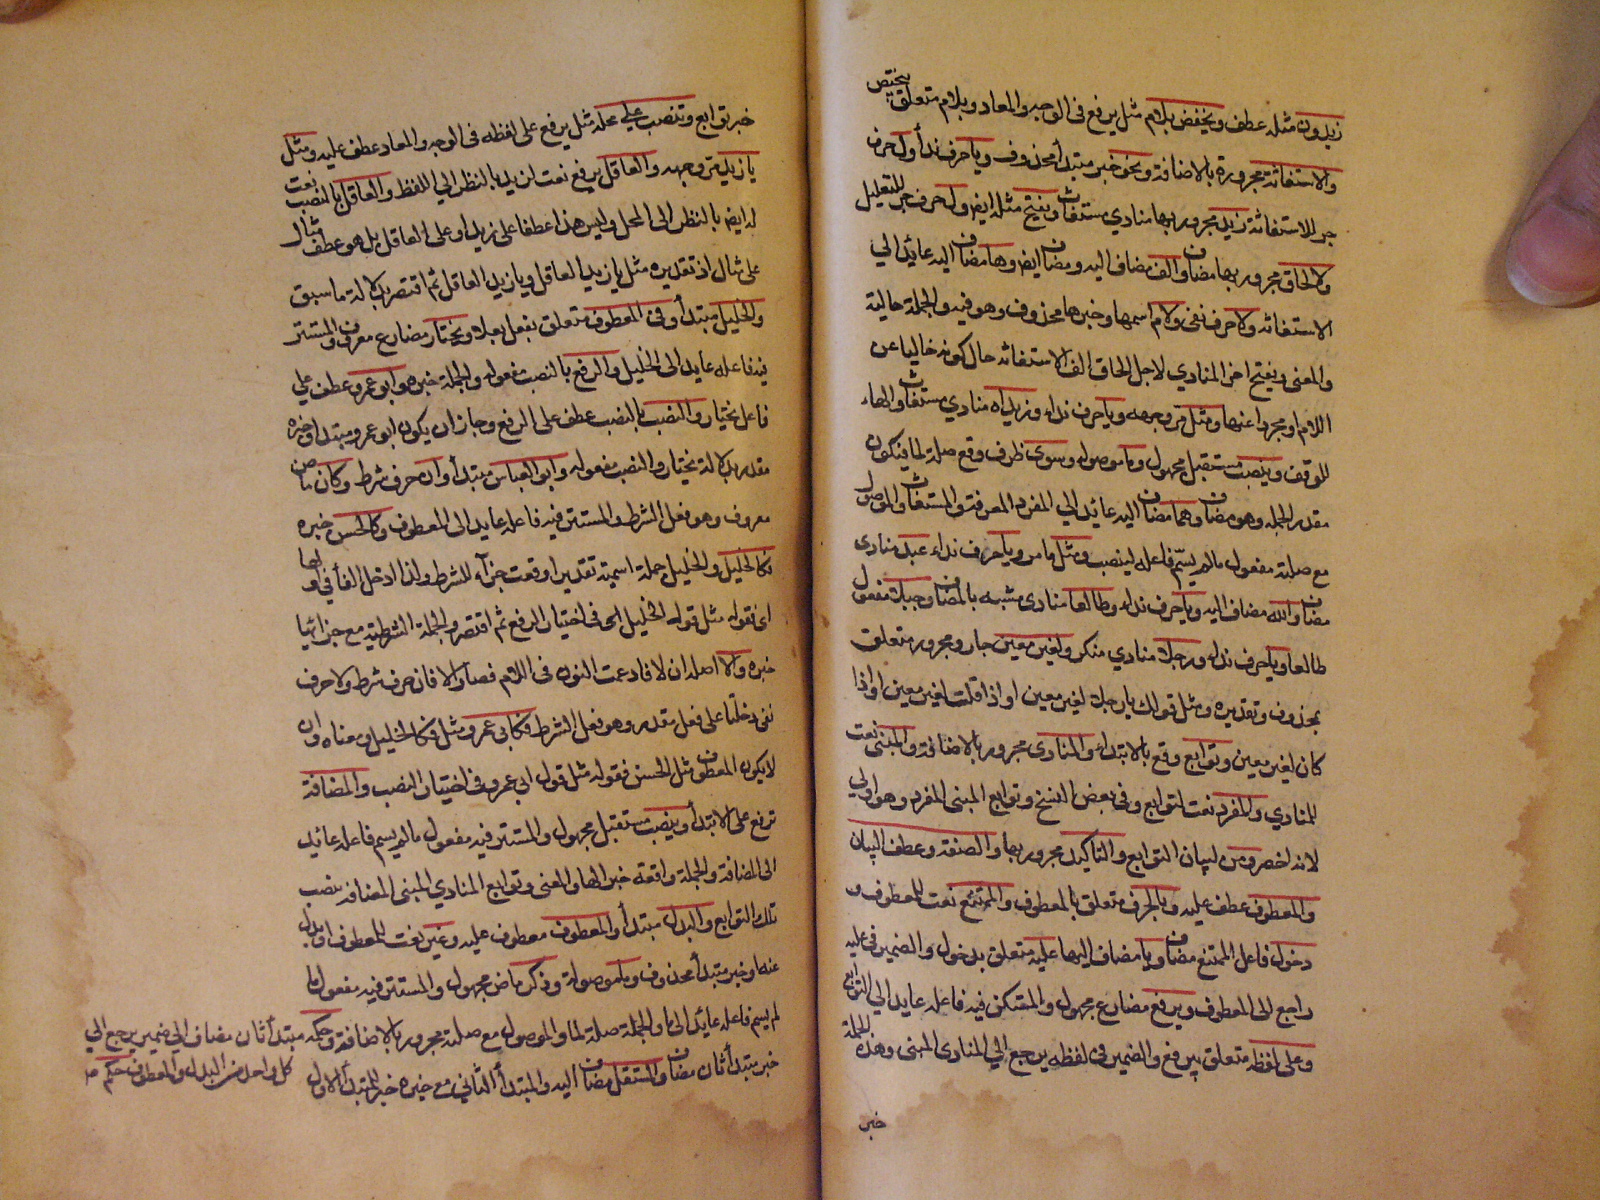 زيدون مثله عطف ويخفض بلام مثل يرفع في الوجه والمعاد وبلام متعلق يختص
والاستغاثة مجرورة بالاضافة ونحو خبر مبتدأ محذوف ويا حرف ندأ ول حرف
جر للاستغاثة زيد مجرور بها منادي مستغاث ويفتح مثله ايض ول حرف جر للتعليل
ولالحاق مجرور بها مضاف والف مضاف اليه ومضاف ايض وها مضاف اليه عائد الي
الاستغاثه ولا حرف نفي ولام اسمها وخبرها محذوف وهو فيه والجملة حالية
والمعني ويفتح اخر المنادي لاجل الحاق الف الاستغاثه حال كونه خاليا عن
اللام او مجردا عنها ومثل مر وجهه ويا حرف نداء وزيداه منادي مستغاث والهاء
للوقف وينصب مستقبل مجهول وما موصوله وسوى ظرف وقع صلة لما فيكون
مقدر الجمله وهو مضاف وهما مضاف اليه عائد الي المفرد المعرفة والمستغاث والموصول
مع صلته مفعول مالم يسمّ فاعله لينصب ومثل ما مر ويا حرف نداء عبد منادى
مضاف والله مضاف اليه ويا حرف نداء وطالعا منادى مشبه بالمضاف وجبلا مفعول
طالعا ويا حرف نداء ورجلا منادي منكر ولغير معين جار ومجرور متعلق
بمحذوف وتقديره ومثل قولك يا رجلا لغير معين او اذا قلت لغير معين او اذا
كان لغير معين وتوابع وقع بالابتداء والمنادى مجرور بالاضافة والمبني نعت
للمنادي والمفرد نعت لتوابع وفي بعض النسخ وتوابع المبنى المفرد وهو اولي
لانه اخصر ومن لبيان التوابع والتاكيد مجرور بها والصفة وعطف البيان
والمعطوف عطف عليه وبالحرف متعلق بالمعطوف والممتنع نعت للمعطوف و
دخول فاعل الممتنع مضاف ويا مضاف اليها عليه متعلق بدخول والضمير في عليه
راجع الى المعطوف ويرفع مضارع مجهول والمستكن فيه فاعله عايد الي التوابع
وعلى لفظه متعلق بيرفع والضمير في لفظه يرجع الي المنادى المبنى وهذه الجملة
خبر
خبر توابع وتنصب علي محله مثل يرفع على لفظه في الوجه والمعاد عطف عليه ومثل
يا زيد مر وجهه والعاقل يرفع نعت لزيد بالنظر الي اللفظ والعاقل بالنصب نعت
له ايض بالنظر الى المحل وليس هذا عطفا على زيد او على العاقل بل هو عطف مثال
على مثال اذ تقديره مثل يا زيد العاقل ويا زيد العاقل ثم اقتصر بدلالة ما سبق
والخليل مبتدأ وفي المعطوف متعلق بفعل بعده ويختار مضارع معروف والمستتر
فيه فاعله عايد الى الخليل والرفع بالنصب مفعوله والجملة خبره وابو عمرو عطف علي
فاعل يختار والنصب بالنصب عطف على الرفع وجاز ان يكون ابو عمرو مبتدا وخبره
مقدر بدلالة يختار والنصب مفعوله وابو العباس مبتدأ وان حرف شرط وكان ماض
معروف وهو فعل الشرط والمستتر فيه فاعله عايد الى المعطوف وكالحسن خبره
فكالخليل والخليل جملة اسمية تقديرا وقعت جزآء للشرط ولذا ادخل الفأ في اولها
اى فقوله مثل قول الخليل اى في اختيار الرفع ثم اقتصر والجملة الشرطية مع جزائها
خبره والا اصله ان لا فادغمت النون في اللام فصار الا فان حرف شرط ولا حرف
نفي دخلتا على فعل مقدر وهو فعل الشرط فكابي عمرو مثل فكالخليل ومعناه وان
لا يكون المعطوف مثل الحسن فقوله مثل قول ابي عمرو في اختيار النصب والمضافة
ترفع على الابتدأ وينصب مستقبل مجهول والمستتر فيه مفعول مالم يسم فاعله عايد
الى المضافة والجملة واقعة خبر لها والمعنى وتوابع المنادي المبنى المضافة ينصب
تلك التوابع والبدل مبتدأ والمعطوف معطوف عليه وغير نعت للمعطوف او بدل
عنه او خبر مبتدأ محذوف وما موصولة وذكر ماض مجهول والمستتر فيه مفعول ما
لم يسم فاعله عائد الى ما والجملة صلة لما والموصول مع صلته مجرور بالاضافة وحكمه مبتدأ ثان مضاف الى ضمير يرجع الي
كل واحد من البدل والمعطوف حكم
خبر مبتدأ ثان مضاف والمستقل مضاف اليه والمبتدأ الثاني مع خبره خبر للمبتدأ الاول